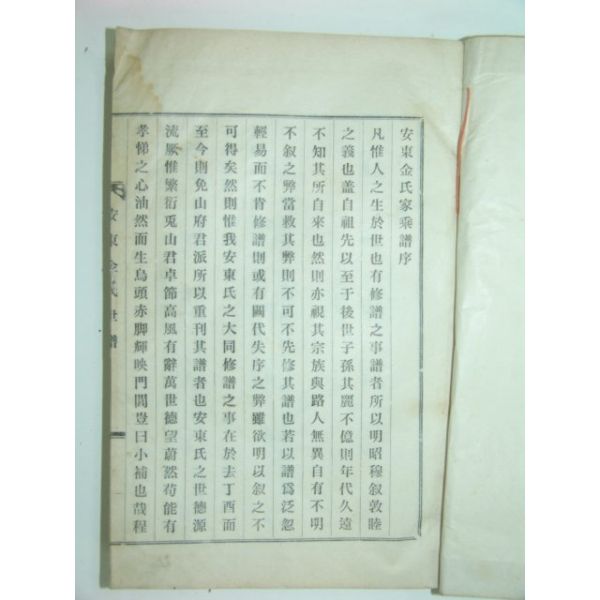 安東金氏家乘譜序
凡惟人之生於世也有修譜之事譜者所以明昭穆叙敦睦
之義也盖自祖先以至于後世子孫其麗不億則年代久遠
不知其所自來也然則亦視其宗族與路人無異自有不明
不叙之弊當救其弊則不可不先修其譜也若以譜爲泛忽
輕易而不肯修譜則或有闕代失序之弊雖欲明以叙之不
可得矣然則惟我安東氏之大同修譜之事在於去丁酉而
至今則免山府君派所以重刊其譜者也安東氏之世德源
流厥惟繁衍兎山君卓節高風有辭萬世德望蔚然苟能有
孝悌之心油然而生鳥頭赤脚輝映門閭豈曰小補也哉程
安東金氏世譜